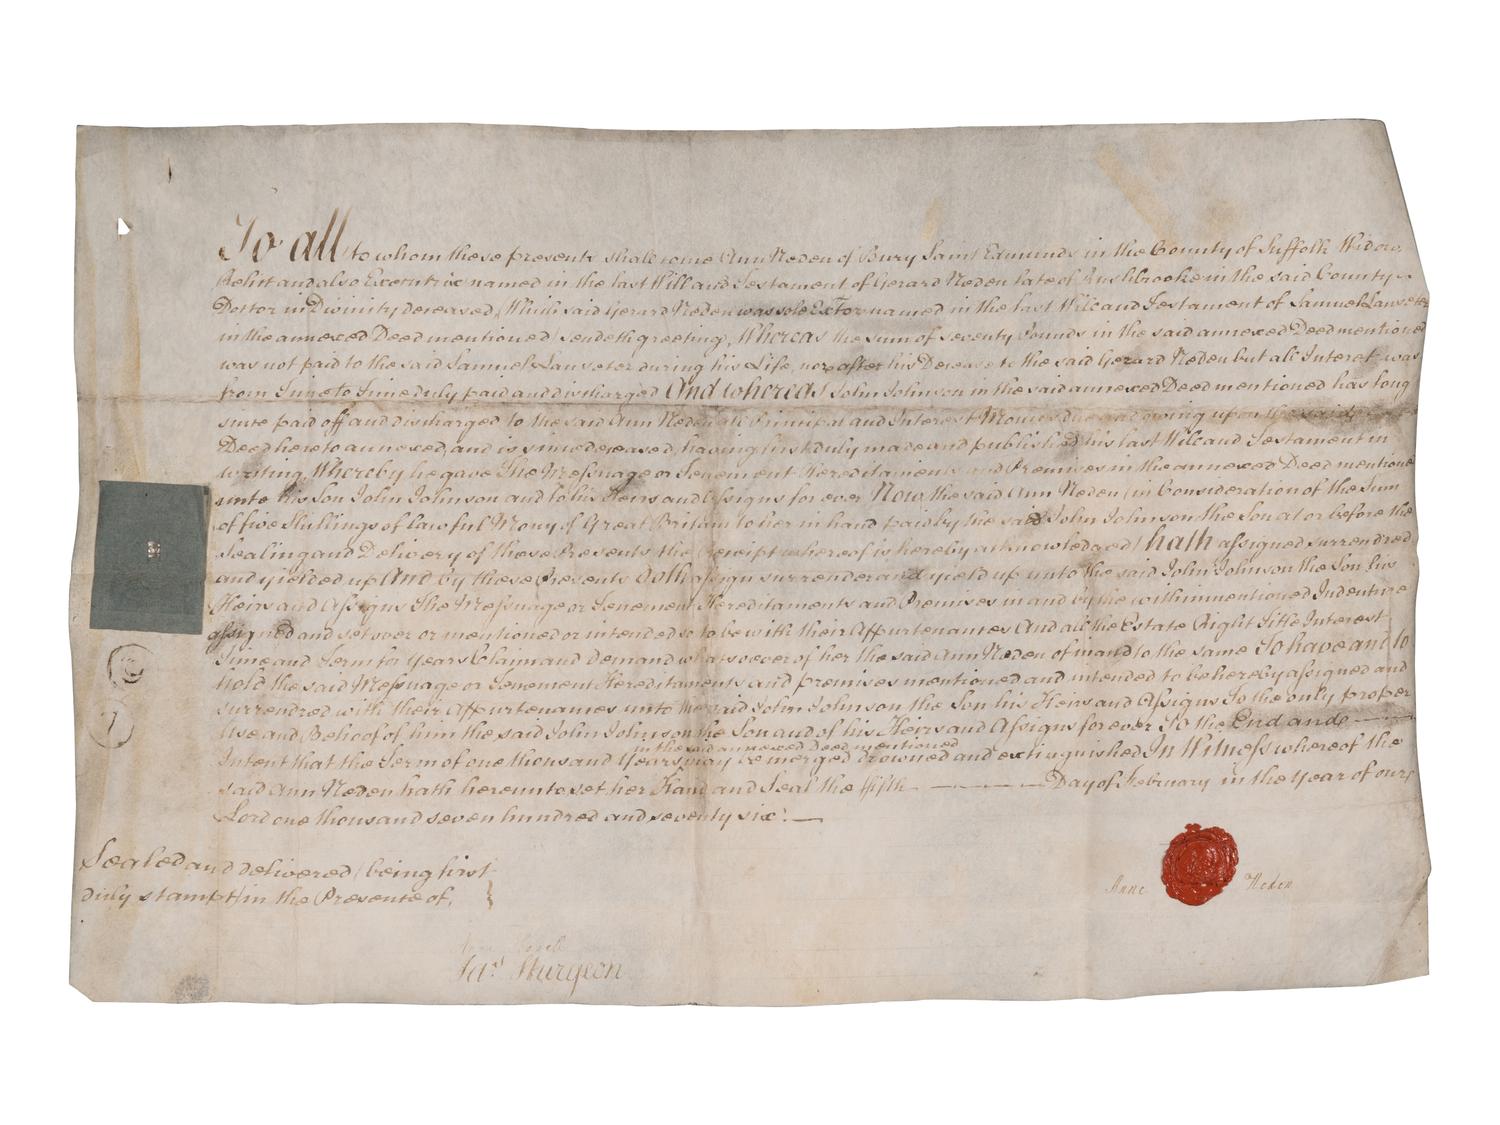 To all to whom these presents shall come Ann Neden of Bury Saint Edmunds in the County of Suffolk Widow
Relict and also Executrix named in the last Will and Testament of Gerard Neden late of Rushbrooke in the said County
Doctor in Divinity deceased, Which said Gerard Neden was sole ExTor named in the last Will and Testament of Samuel
in the annexed Deed mentioned sendeth greeting, Whereas the sum of seventy Pounds in the said annexed Deed mentioned
was not paid to the said Samuel during his Life, nor after his Decease to the said Gerard Neden but all Interest was
from Time to Time duly paid and discharged And whereas John Johnson in the said annexed Deed mentioned has long
since paid off and discharged to the said Ann Neden all Principal and Interest Monies due and owing upon the said
Deed hereto annexed, and is since deceased, having first duly made and published his last Will and Testament in
writing, Whereby he gave The Messuage or Tenement Hereditaments and Premises in the annexed Deed mentioned
unto his Son John Johnson and to his Heirs and Assigns for ever Now the said Ann Neden (in Consideration of the Sum
of five Shillings of lawful Mony of Great Britain to her in hand paid by the said John Johnson the Son at or before the
Sealing and Delivery of these Presents the Receipt whereof is hereby acknowledged) hath assigned surrendred
and yielded up And by these Presents doth assign surrender and yield up unto the said John Johnson the Son his
Heirs and Assigns The Messuage or Tenement Hereditaments and Premises in and by the within mentioned Indenture
assigned and set over or mentioned or intended so to be with their Appurtenances And all the Estate Right Title Interest
Time and Term for Years Claim and Demand whatsoever of her the said Ann Neden of in and to the same To have and to
hold the said Messuage or Tenement Hereditaments and premises mentioned and intended to be hereby assigned and
surrendred with their Appurtenances unto the said John Johnson the Son his Heirs and Assigns To the only proper
Use and Behoof of him the said John Johnson the Son and of his Heirs and Assigns for ever To the End and
in the said annexed Deed mentioned
Intent that the Term of one thousand Years may be merged drowned and extinguished In Witness whereof the
said Ann Neden hath hereunto set her Hand and Seal the fifth Day of February in the Year of our
Lord one thousand seven hundred and seventy six:
Sealed and delivered (being first
duly stampt) in the Presence of,
Anne Neden
Jas Sturgeon